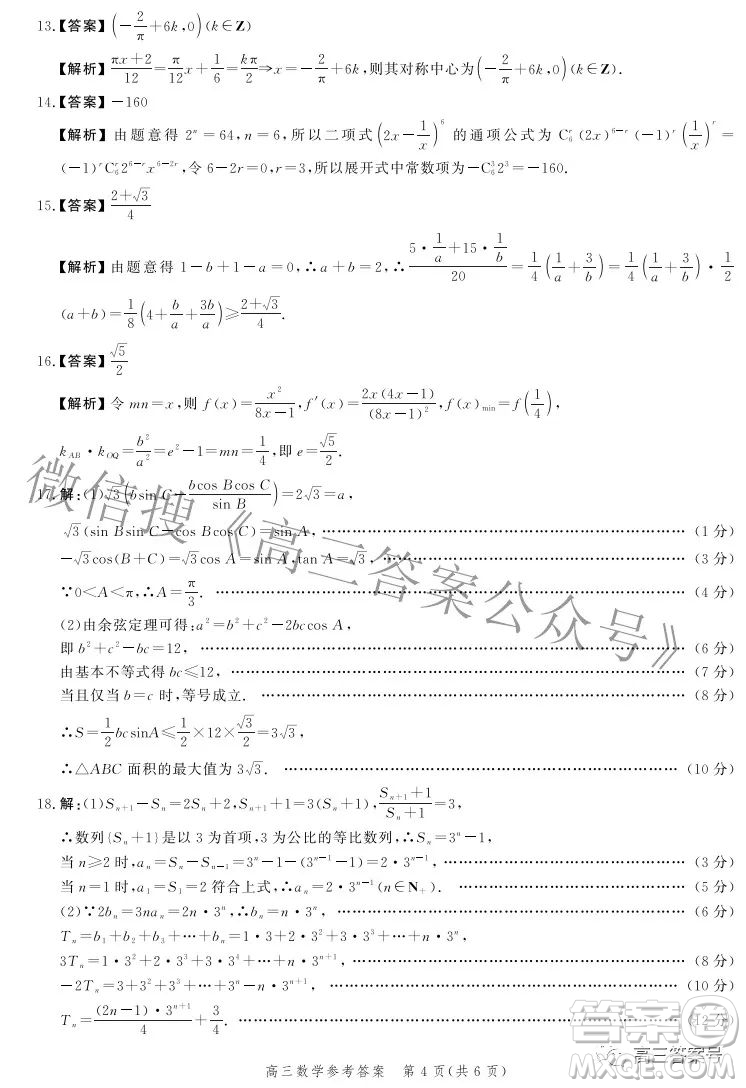 13.【答案】(−2/π+6k,0)(k∈Z)
【解析】(πx+2)/12=π/12 x+1/6=kπ/2⇒x=−2/π+6k,则其对称中心为(−2/π+6k,0)(k∈Z).
14.【答案】−160
【解析】由题意得 2ⁿ=64,n=6,所以二项式(2x−1/x)⁶ 的通项公式为 C₆ʳ(2x)⁶⁻ʳ(−1)ʳ(1/x)ʳ=
(−1)ʳC₆ʳ2⁶⁻ʳx⁶⁻²ʳ,令 6−2r=0,r=3,所以展开式中常数项为−C₆³2³=−160.
15.【答案】(2+√3)/4
【解析】由题意得 1−b+1−a=0,∴a+b=2,∴(5·1/a+15·1/b)/20=1/4(1/a+3/b)=1/4(1/a+3/b)·1/2
(a+b)=1/8(4+b/a+3b/a)≥(2+√3)/4.
16.【答案】√5/2
【解析】令 mn=x,则 f(x)=x²/(8x−1),f′(x)=2x(4x−1)/(8x−1)²,f(x)min=f(1/4),
k_AB·k_OQ=b²/a²=e²−1=mn=1/4,即 e=√5/2.
17.解:(1)√3(bsin C−bcos Bcos C/sin B)=2√3=a,
√3(sin Bsin C−cos Bcos C)=sin A,……(1 分)
−√3cos(B+C)=√3cosA=sin A,tan A=√3,……(3 分)
∵0<A<π,∴A=π/3.……(4 分)
(2)由余弦定理可得:a²=b²+c²−2bccos A,
即 b²+c²−bc=12,……(6 分)
由基本不等式得 bc≤12,……(7 分)
当且仅当 b=c 时,等号成立.……(8 分)
∴S=1/2 bcsinA≤1/2×12×√3/2=3√3,
∴△ABC 面积的最大值为 3√3.……(10 分)
18.解:(1)Sₙ₊₁−Sₙ=2Sₙ+2,Sₙ₊₁+1=3(Sₙ+1),(Sₙ₊₁+1)/(Sₙ+1)=3,
∴数列{Sₙ+1}是以 3 为首项,3 为公比的等比数列,∴Sₙ=3ⁿ−1,
当 n≥2 时,aₙ=Sₙ−Sₙ₋₁=3ⁿ−1−(3ⁿ⁻¹−1)=2·3ⁿ⁻¹,……(3 分)
当 n=1 时,a₁=S₁=2 符合上式,∴aₙ=2·3ⁿ⁻¹(n∈N₊).……(5 分)
(2)∵2bₙ=3naₙ=2n·3ⁿ,∴bₙ=n·3ⁿ,……(6 分)
Tₙ=b₁+b₂+b₃+…+bₙ=1·3+2·3²+3·3³+…+n·3ⁿ,
3Tₙ=1·3²+2·3³+3·3⁴+…+n·3ⁿ⁺¹,……(8 分)
−2Tₙ=3+3²+3³+…+3ⁿ−n·3ⁿ⁺¹,……(10 分)
Tₙ=(2n−1)·3ⁿ⁺¹/4+3/4.……(12 分)
高三数学参考答案 第 4 页(共 6 页)
微信搜《高三答案公众号》
答案圈
高三答案号